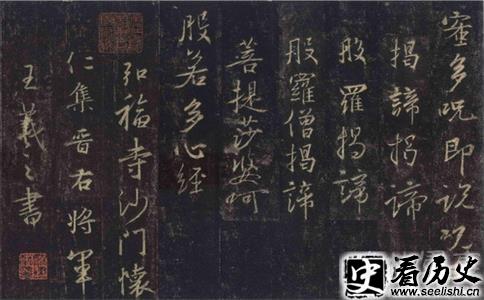 蜜多呪即說呪
揭諦揭諦
般羅揭諦
般羅僧揭諦
菩提莎婆呵
般若多心經
弘福寺沙門懷
仁集晉右將軍
王羲之書
史
看历史
www.seelishi.cn